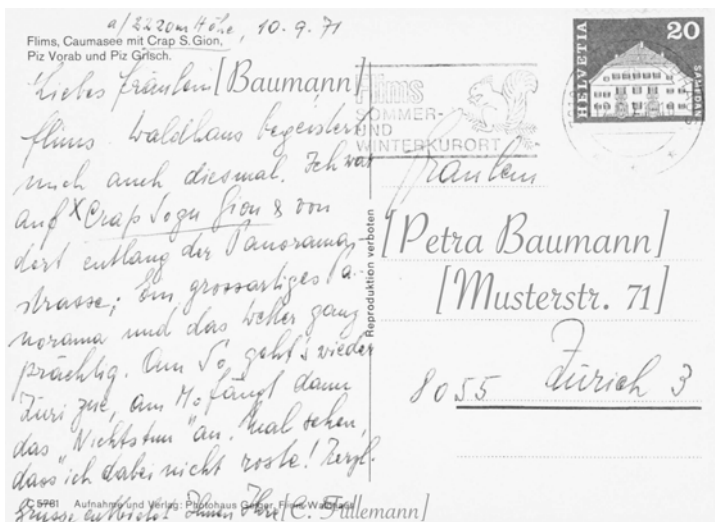 a/2220m Höhe, 10.9.71
Flims, Caumasee mit Crap S. Gion,
Piz Vorab und Piz Grisch.
Liebes Fräulein [Baumann]
Flims Waldhaus begeistert
mich auch diesmal. Ich war
auf X Crap Sogn Gion & von
dort entlang der Panorama-
strasse; Ein grossartiges Pa-
norama und das Wetter ganz
prächtig. Am So. geht's wieder
Züri zue, am Mo fängt dann
das "Nichtstun" an. Mal sehen,
dass ich dabei nicht roste! Herzl.
Grüsse entbietet Ihnen Ihre [C. Füllemann]
C 5781 Aufnahme und Verlag: Photohaus Geiger, Flims-Waldhaus
Reproduktion verboten
Flims
SOMMER-
UND
WINTERKURORT
HELVETIA
20
SAMEDAN
Fräulein
[Petra Baumann]
[Musterstr. 71]
8055 Zürich 3